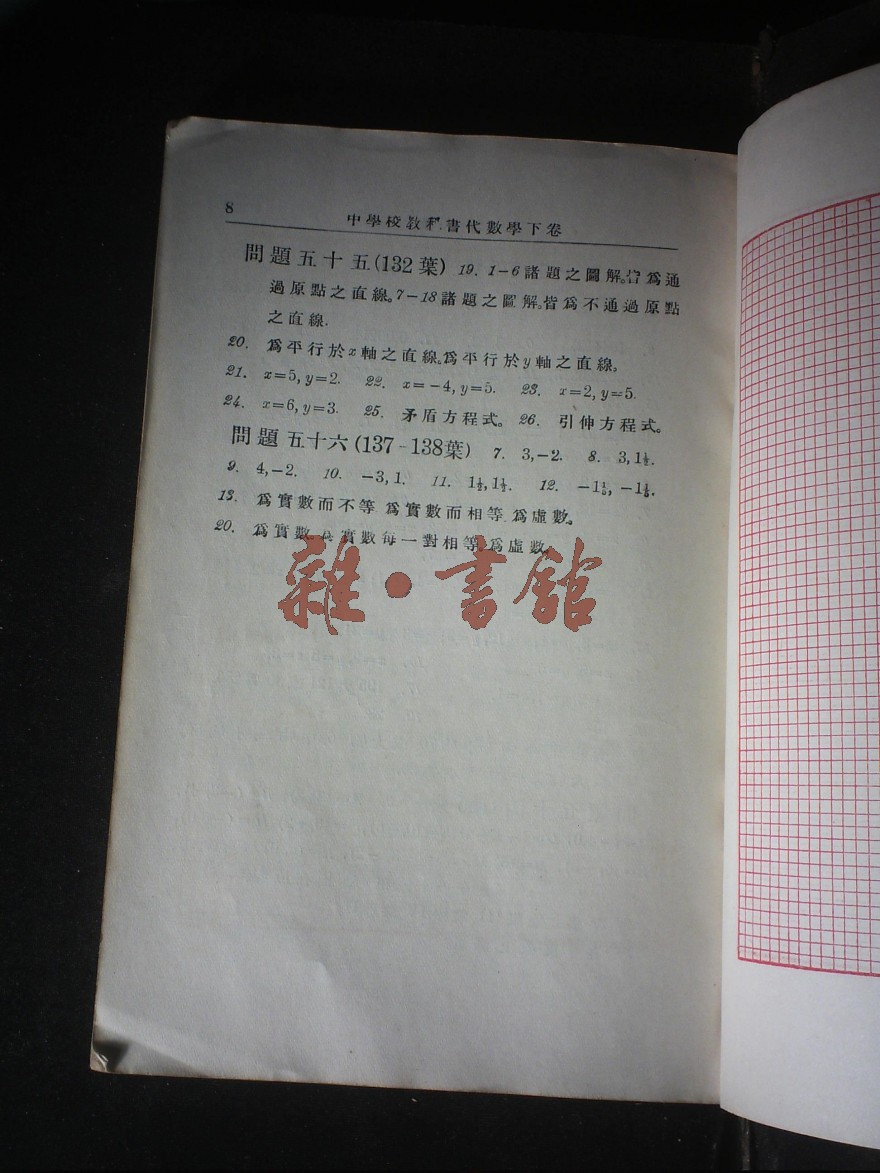 8
中學校教科書代數學下卷
問題五十五(132葉) 19. 1-6諸題之圖解。皆爲通
過原點之直線。7-18諸題之圖解。皆爲不通過原點
之直線.
20. 爲平行於x軸之直線。爲平行於y軸之直線。
21. x=5, y=2. 22. x=-4, y=5. 23. x=2, y=5.
24. x=6, y=3. 25. 矛盾方程式。 26. 引伸方程式。
問題五十六(137-138葉) 7. 3,-2. 8. 3,1½.
9. 4,-2. 10. -3,1. 11. 1½,1½. 12.
13. 爲實數而不等 爲實數而相等 爲虛數。
20. 爲實數 實數每一對相等 爲虛數。
雜·書館